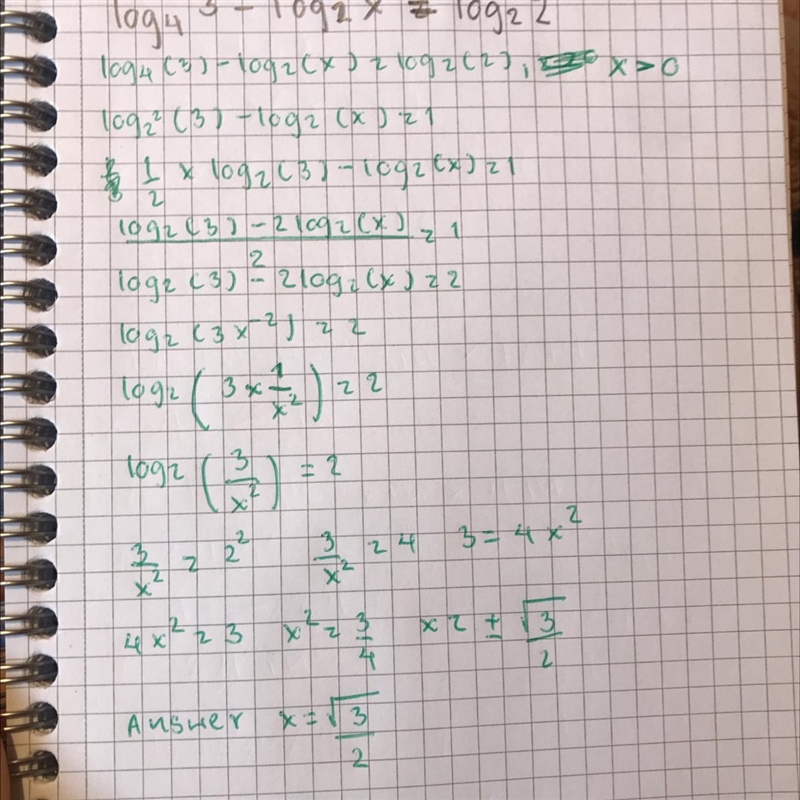 log₄ 3 - log₂ x = log₂ 2
log₄(3) - log₂(x) = log₂(2), x > 0
log₂²(3) - log₂(x) = 1
1/2 × log₂(3) - log₂(x) = 1
(log₂(3) - 2log₂(x))/2 = 1
log₂(3) - 2log₂(x) = 2
log₂(3x⁻²) = 2
log₂(3 × 1/x²) = 2
log₂(3/x²) = 2
3/x² = 2² 3/x² = 4 3 = 4x²
4x² = 3 x² = 3/4 x = ± √3/2
Answer x = √3/2